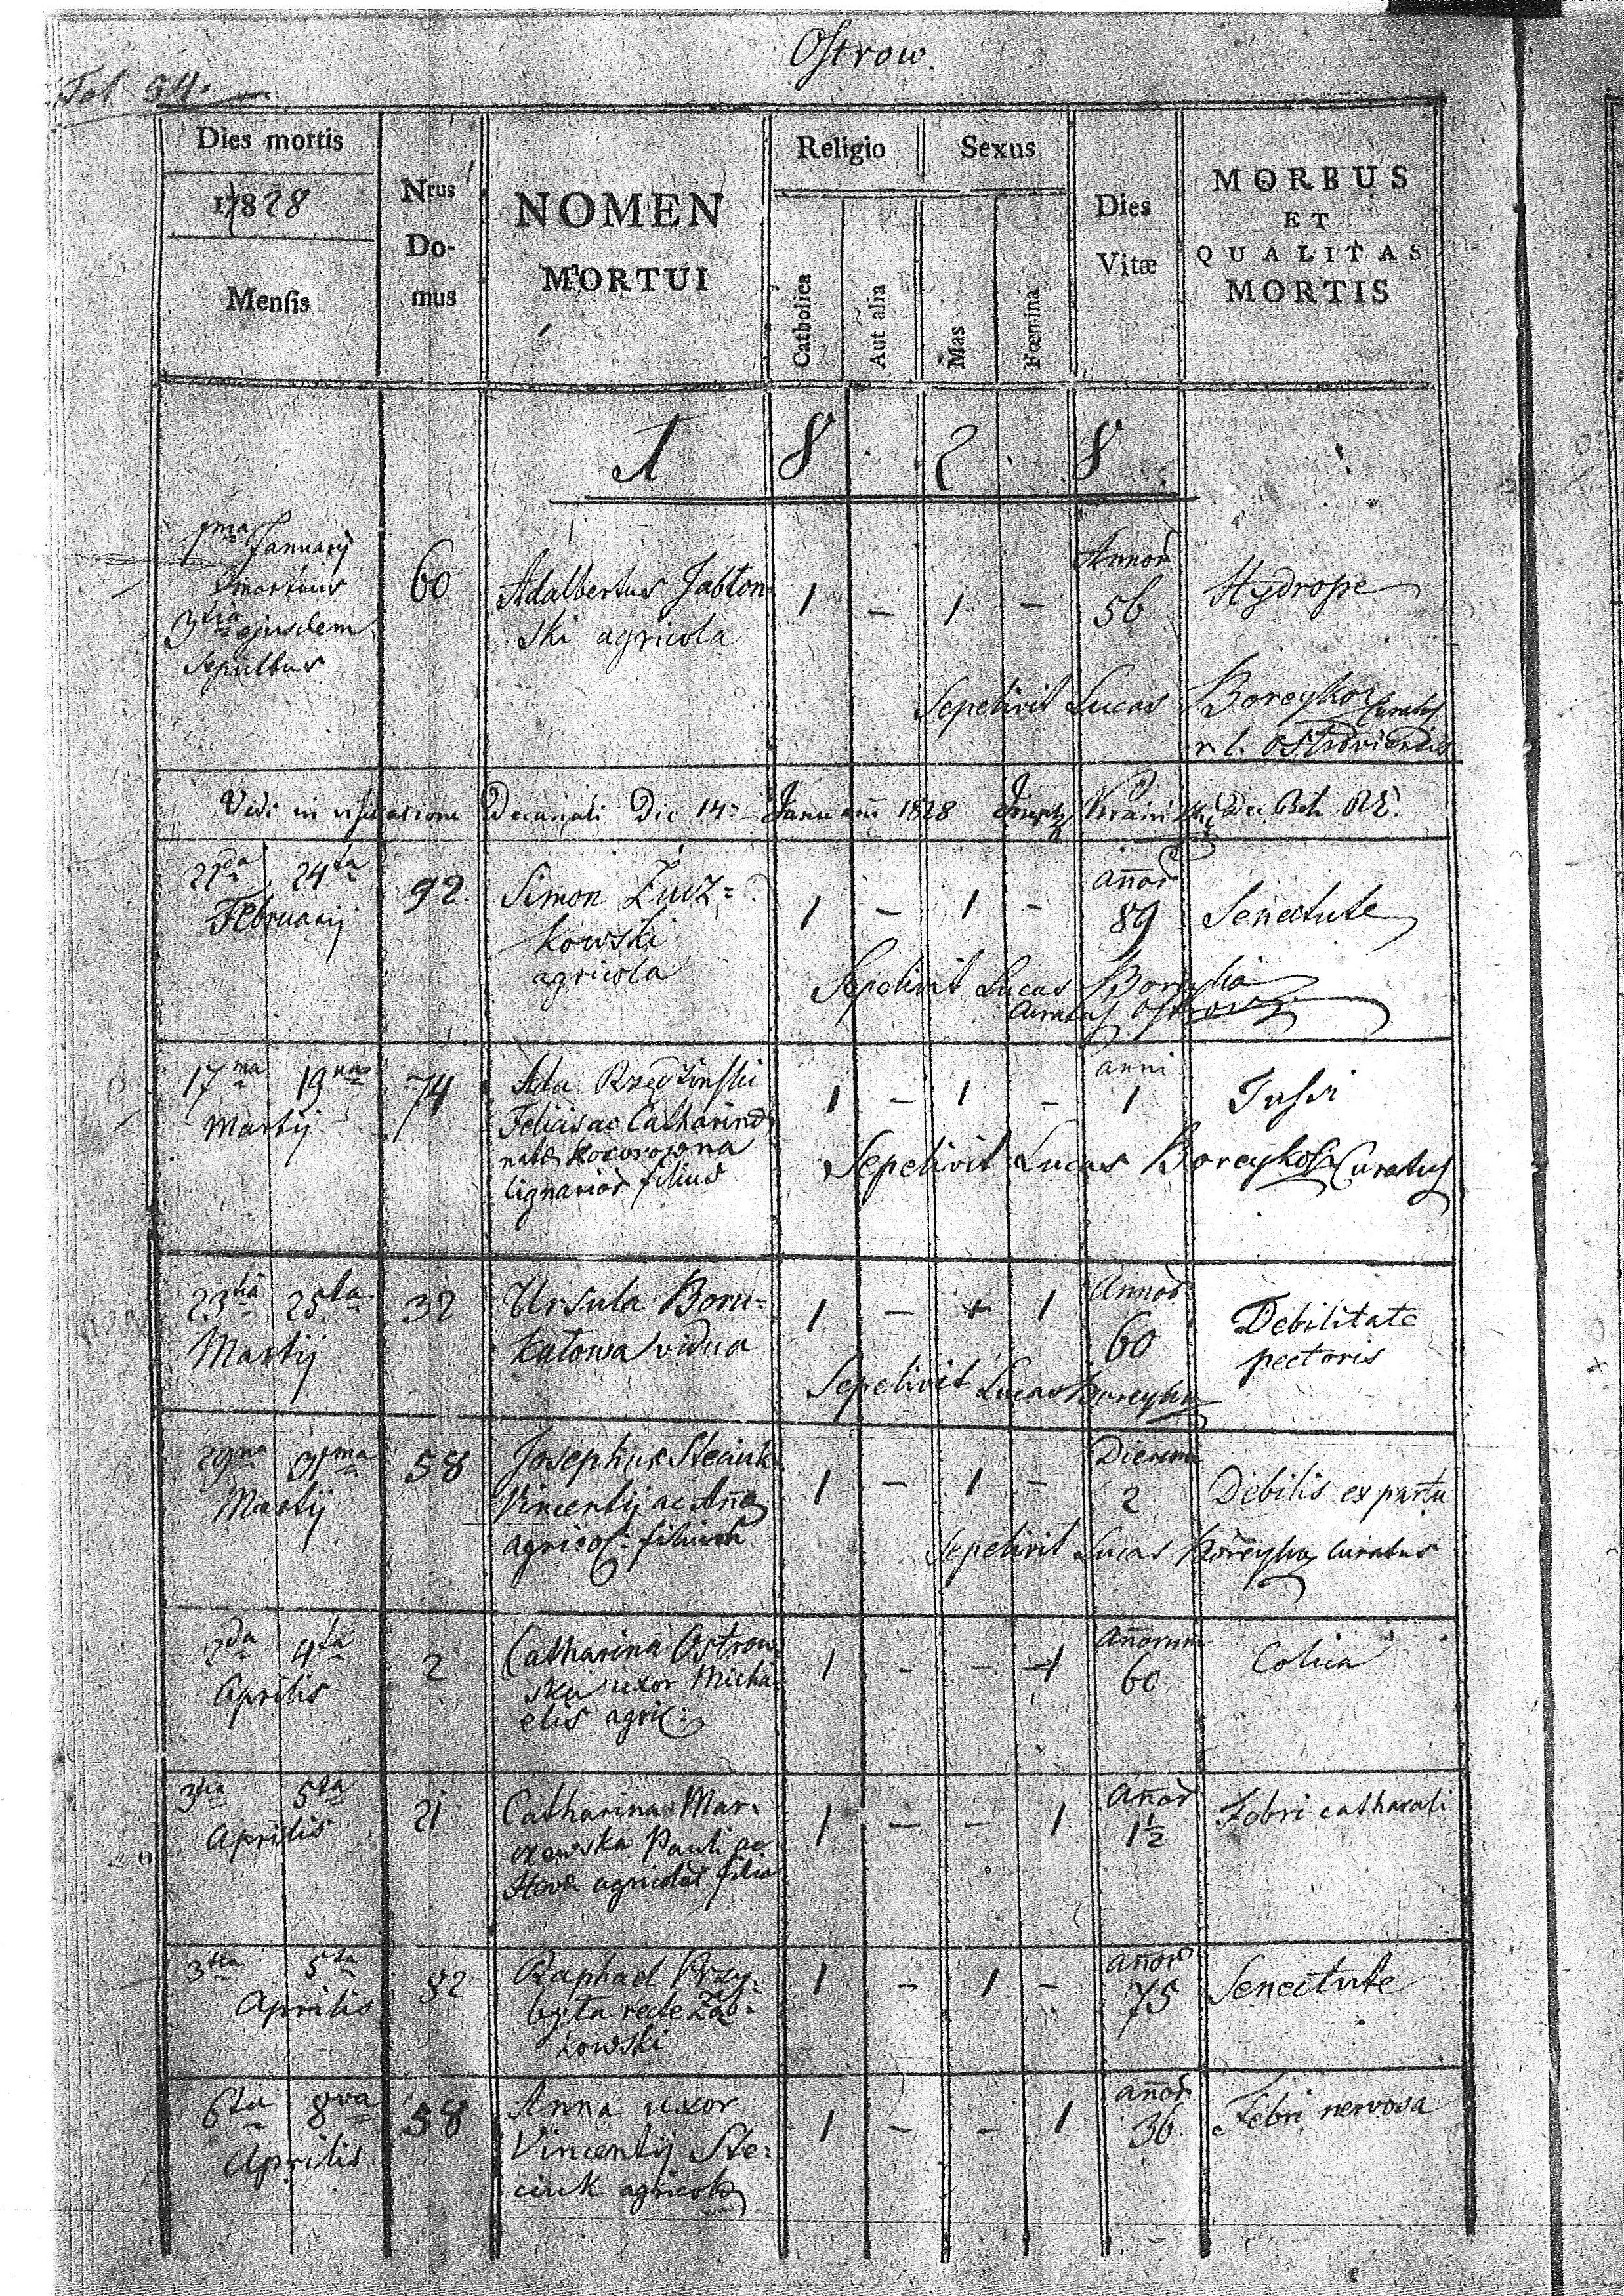 Ostrow.
Fol 54.
Dies mortis
1828
Mensis
Nrus
Do-
mus
NOMEN
MORTUI
Religio
Catholica
Aut alia
Sexus
Mas
Fœmina
Dies
Vitæ
MORBUS
ET
QUALITAS
MORTIS
1 8 2 8
1ma Januarij
mortuus
3tia ejusdem
Sepultus
60
Adalbertus Jabłon-
ski agricola
1 - 1 -
Annor
56
Hydrope
Sepelivit Lucas Boreyko Curatus
r. l. Ostroviensis
Vidi in visitatione Decanali Die 14 Januarii 1828
22da 24ta
Februarij
92.
Simon Żucz=
kowski
agricola
1 - 1 -
añor
89
Senectute
Sepelivit Lucas Boreyko
Curatus Ostrov
17ma 19na
Martij
74
Ada
Felicis ac Catharina
nata
lignarior filius
1 - 1 -
anni
1
Tussi
Sepelivit Lucas Boreyko Curatus
23tia 25ta
Martij
32
Ursula Boru=
katowa vidua
1 - - 1
Annor
60
Debilitate
pectoris
Sepelivit Lucas Boreyko
29na 31ma
Martij
58
Josephus Steciuk
Vincentij ac Aña
agricol: filius
1 - 1 -
Dierum
2
Debilis ex partu
Sepelivit Lucas Boreyko Curatus
2da 4ta
Aprilis
2
Catharina Ostrow
ska uxor Micha
elis agric:
1 - - 1
añorum
60
Colica
3tia 5ta
Aprilis
21
Catharina Mar-
Pauli ac
agricolar filia
1 - - 1
Añor
1½
Febri catharali
3tia 5ta
Aprilis
82
Raphael Przy-
byta recte
kowski
1 - 1 -
añor
75
Senectute
6ta 8va
Aprilis
58
Anna uxor
Vincentij Ste=
ciuk agricola
1 - - 1
añor
36
Febri nervosa